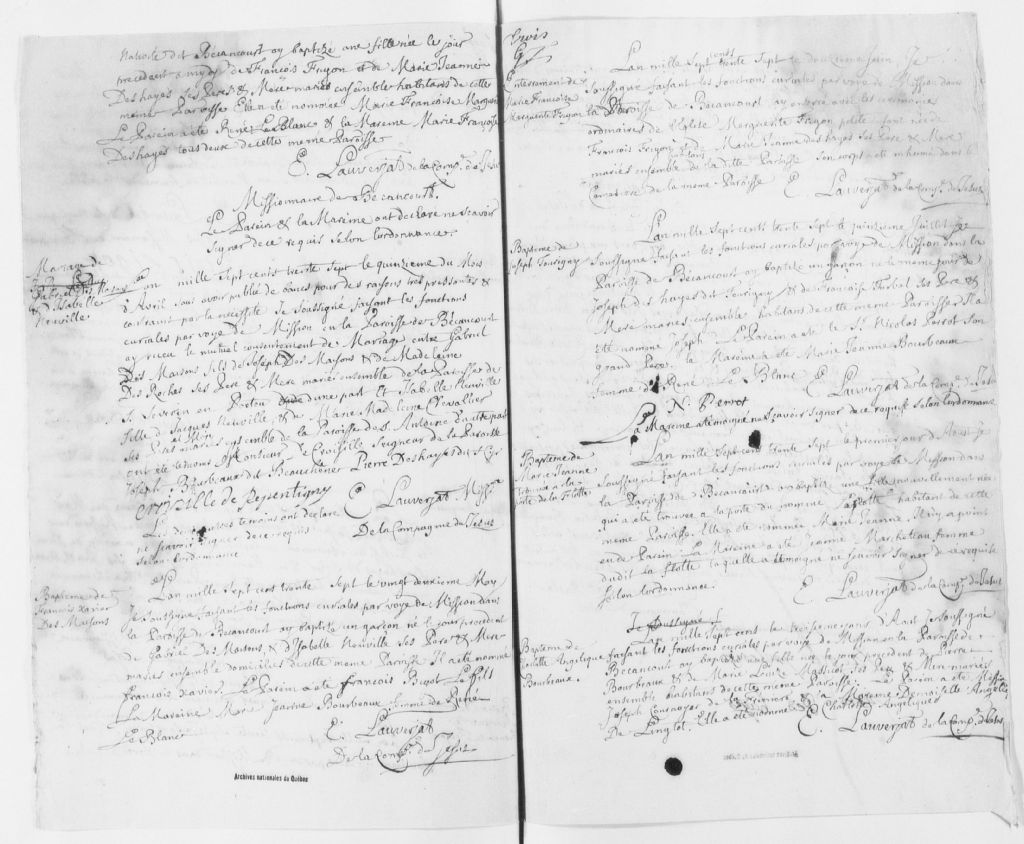 Nativité dit Bécancourt ay baptizé une fille née le jour
precedent a mydy de François Frigon et de Marie Jeanne
Deshayes ses Pere & Mere mariés ensemble habitans de cette
meme Paroisse Elle a été nommée Marie Françoise Marguerite
Le Parein a été René Le Blanc & la Mareine Marie Françoise
Deshayes tous deux de cette meme Paroisse
E. Lauverjat de la Comp. de Jesus
Missionnaire de Bécancourt.
Le Parein & la Mareine ont declaré ne scavoir
signer de ce requis selon l'ordonnance.
Mariage de
Gabriel Des Maisons
& d'Isabelle
Neuville
L'an mille Sept cents trente Sept le quinzieme du Mois
d'Avril sans avoir publié de bancs pour des raisons tres pressantes &
contraint par la necessité Je Soussigné faisant les fonctions
curiales par voye de Mission en la Paroisse de Bécancourt
ay receu le mutuel consentement de Mariage entre Gabriel
Des Maisons fils de Joseph Des Maisons & de Madeleine
Des Roches ses Pere & Mere mariés ensemble de la Paroisse de
S. Severin en Poitou d'une part Et Isabelle Neuville
fille d'Jacques Neuville, & de Marie Madeleine Chevalier
ses Pere & Mere mariés ensemble de la Paroisse de S. Antoine d'autre part
ont été témoins Monsieur de Croisille Seigneur de la Paroisse
Joseph Bourbeaux dit Beauchêne Pierre Deshayes dit S. Cyr
Croizille de Pesentigny E. Lauverjat Miss.
Les autres temoins ont declaré
De la Compagnie de Jesus
ne scavoir signer de ce requis
selon l'ordonnance
Baptême de
François Xavier
Des Maisons
L'an mille Sept cens trente Sept le vingt deuxieme May
Je soussigné faisant les fonctions curiales par voye de Mission dans
la Paroisse de Bécancourt ay baptizé un garçon né le jour precedent
de Gabriel Des Maisons, & d'Isabelle Neuville ses Pere & Mere
mariés ensemble domiciliés de cette meme Paroisse Il a été nommé
François Xavier. Le Parein a été François Bigot le fils
La Mareine Marie Jeanne Bourbeau femme de René
Le Blanc
E. Lauverjat
De la Comp. de Jesus
Archives nationales du Québec
trois
Enterrement de
Marie Françoise
Marguerite Frigon
L'an mille Sept cents trente Sept le douzieme Juin, Je
Soussigné faisant les fonctions curiales par voye de Mission dans
la Paroisse de Bécancourt ay enterré avec les ceremonies
ordinaires de l'Eglise Marguerite Frigon petite fille née de
François Frigon & de Marie Jeanne Deshayes ses Pere & Mere
mariés ensemble habitans de la ditte Paroisse Son corps a été inhumé dans le
Cimetiere de la meme Paroisse E. Lauverjat de la Comp. de Jesus
Baptême de
Joseph Tourigny
L'an mille Sept cents trente Sept le quinzieme Juillet Je
Soussigné faisant les fonctions curiales par voye de Mission dans la
Paroisse de Bécancourt ay baptizé un garçon né le meme jour de
Joseph des hayes dit Tourigny & de Françoise ses Pere &
Mere mariés ensemble habitans de cette meme Paroisse. Il a
été nommé Joseph. Le Parein a été le Sr. Nicolas Perrot Son
grand Pere. la Mareine a été Marie Jeanne Bourbeaux
femme de René Le Blanc E. Lauverjat de la Comp. de Jesus
N. Perrot
La Mareine a témoigné ne scavoir signer de ce requise selon l'ordonnance
Baptême de
Marie Jeanne
trouvée a la
porte de la Flotte
L'an mille Sept cens trente Sept le premier jour d'Aoust Je
Soussigné faisant les fonctions curiales par voye de Mission dans
la Paroisse de Bécancourt ay baptizé une fille nouvellement née
qui a été trouvée a la porte du nommé Laflotte habitant de cette
meme Paroisse. Elle a été nommée Marie Jeanne. Il n'y a point
eu de Parein. La Mareine a été Jeanne Marcheteau femme
dudit la Flotte laquelle a témoigné ne scavoir signer de ce requise
selon l'ordonnance. E. Lauverjat de la Comp. de Jesus
Je Soussigné
Baptême de
Angelique
Bourbeaux.
L'an mille Sept cent le d'Aoust Je Soussigné
faisant les fonctions curiales par voye de Mission en la Paroisse de
Bécancourt ay baptizé une fille née le jour precedent de Pierre
Bourbeaux & de Marie Louise ses Pere & Mere mariés
ensemble habitans de cette meme Paroisse. Le Parein a été Messire
Joseph & la Mareine Demoiselle Angelique
De Linctot. Elle a été nommée Charlotte Angelique
E. Lauverjat de la Comp. de Jesus